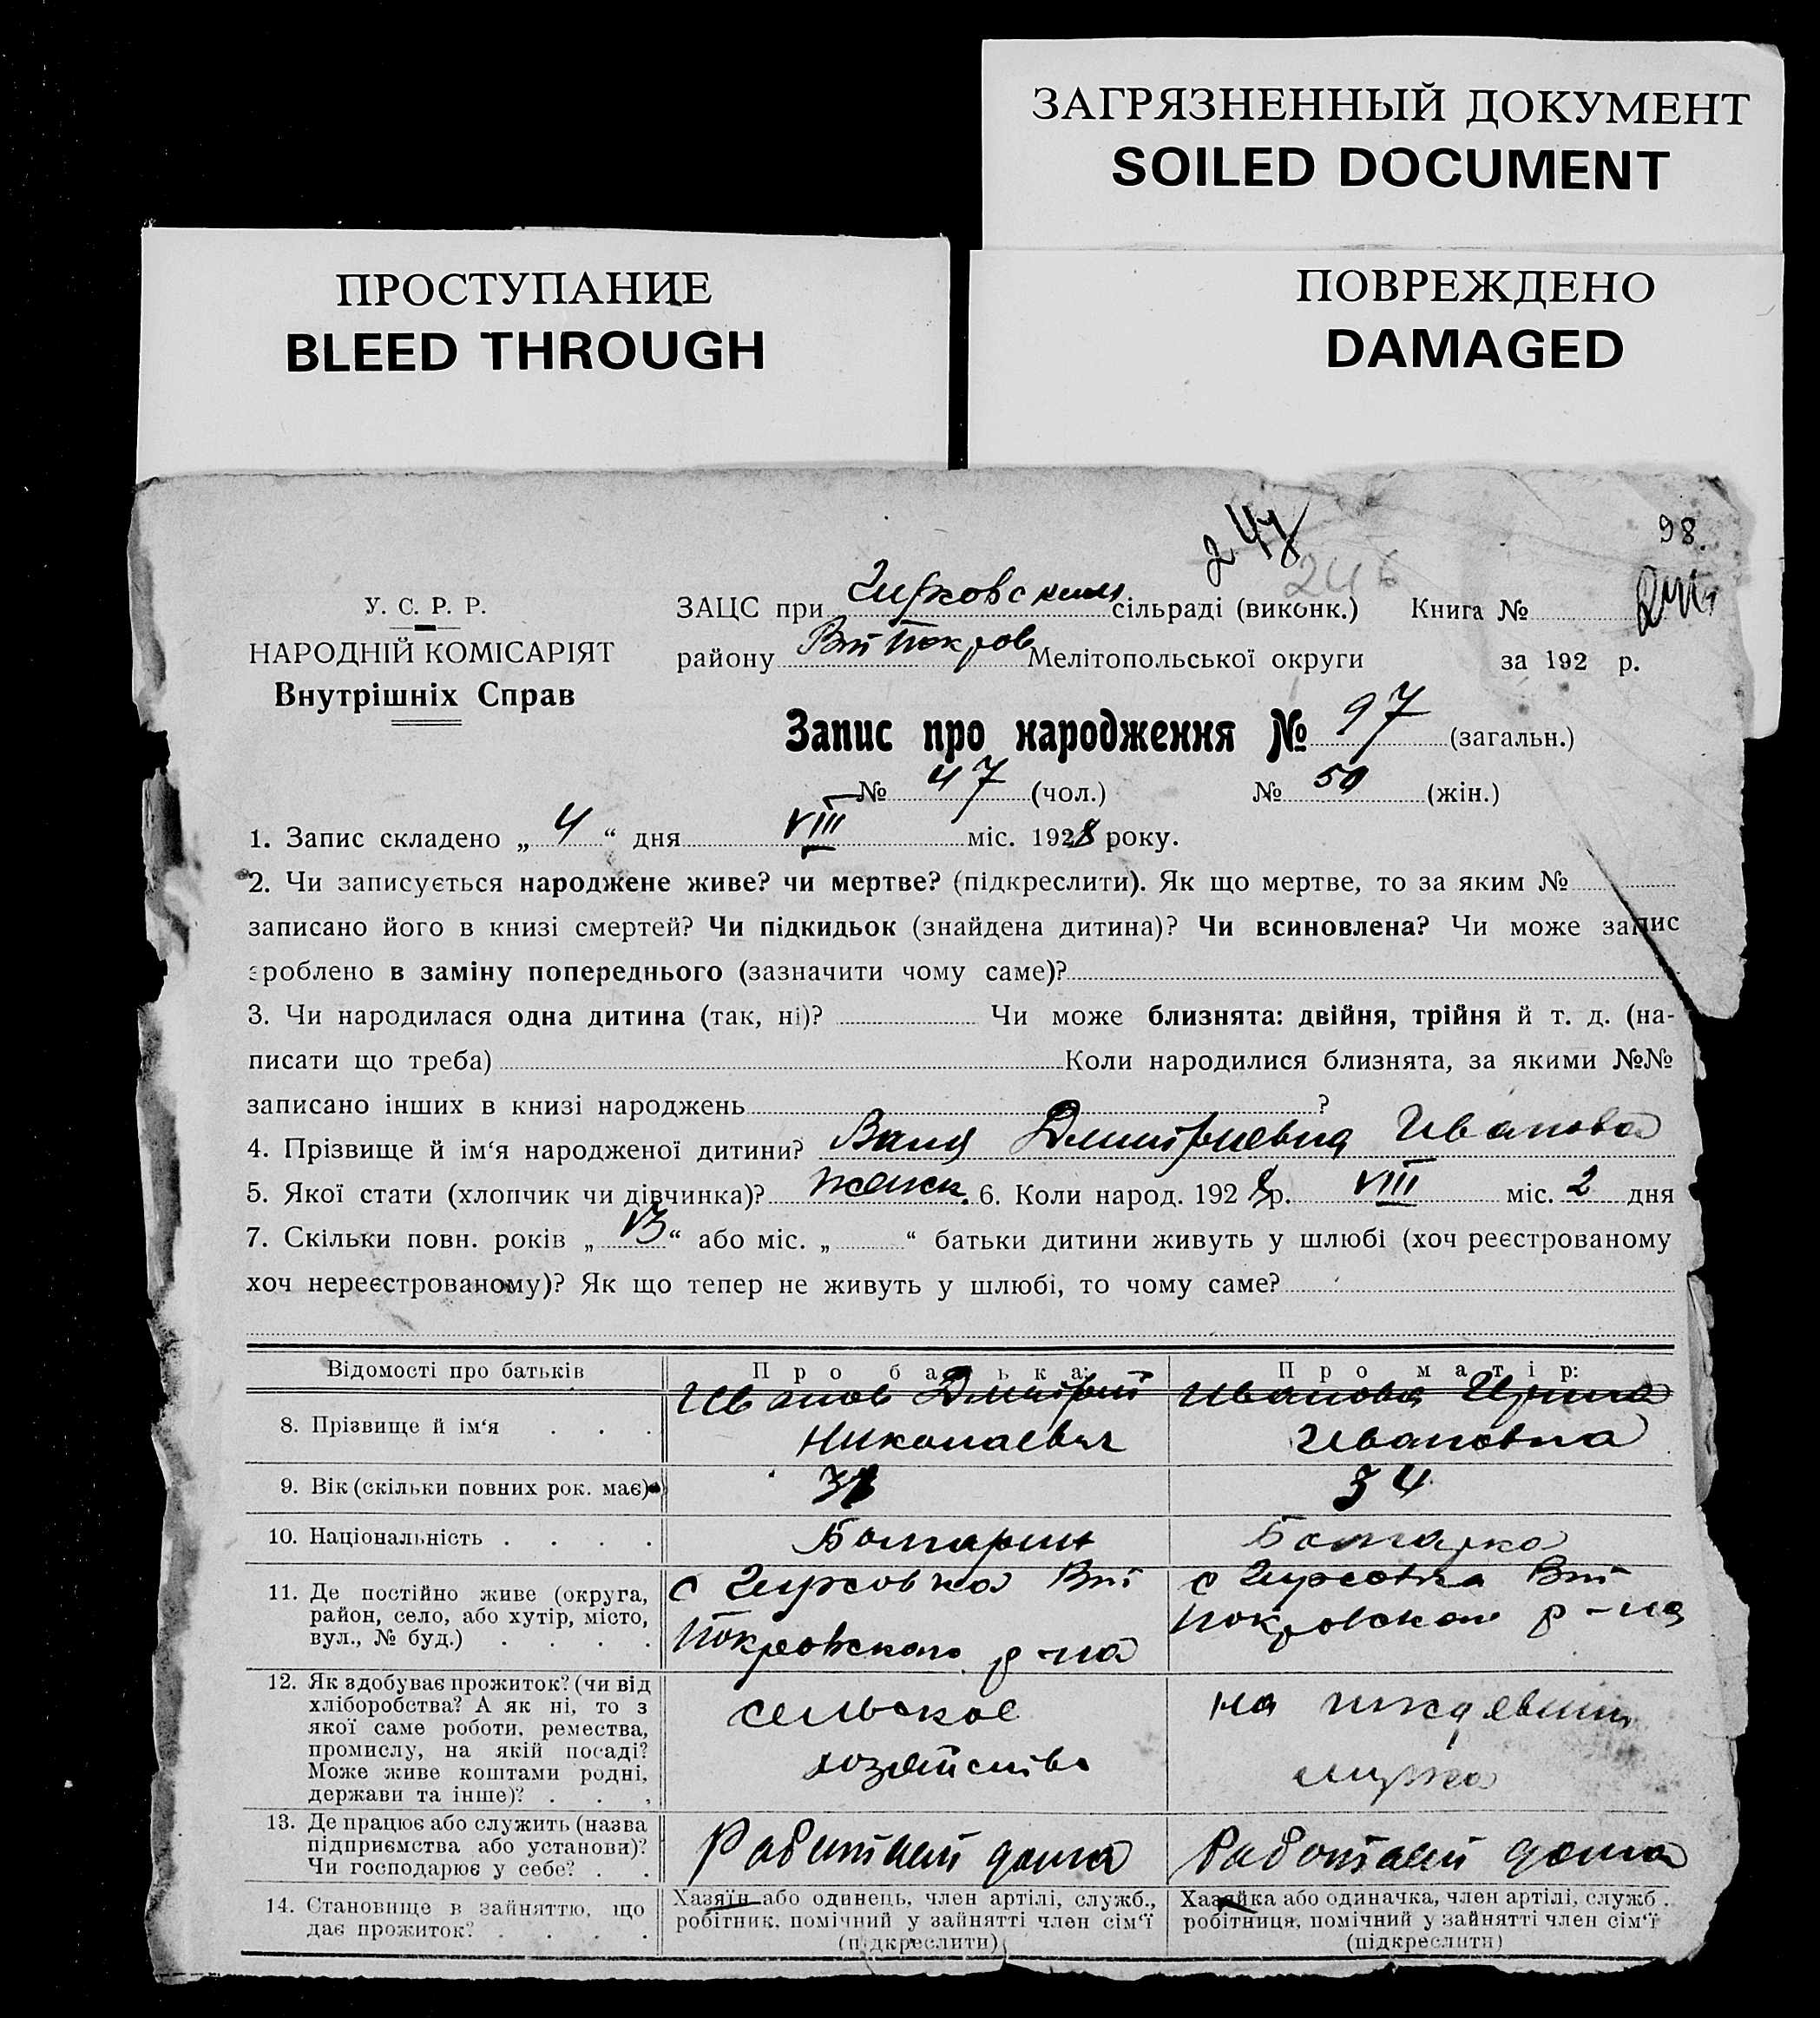 ЗАГРЯЗНЕННЫЙ ДОКУМЕНТ
SOILED DOCUMENT
ПРОСТУПАНИЕ
BLEED THROUGH
ПОВРЕЖДЕНО
DAMAGED
98.
247
246
У. С. Р. Р.
НАРОДНІЙ КОМІСАРІЯТ
Внутрішніх Справ
ЗАЦС при Гирсовским сільраді (виконк.) Книга №
району Вт Покров Мелітопольської округи за 192 р.
Запис про народження № 97 (загальн.)
№ 47 (чол.) № 50 (жін.)
1. Запис складено „ 4 “ дня VIII міс. 1928 року.
2. Чи записується народжене живе? чи мертве? (підкреслити). Як що мертве, то за яким №
записано його в книзі смертей? Чи підкидьок (знайдена дитина)? Чи всиновлена? Чи може запис
зроблено в заміну попереднього (зазначити чому саме)?
3. Чи народилася одна дитина (так, ні)? Чи може близнята: двійня, трійня й т. д. (на-
писати що треба) Коли народилися близнята, за якими №№
записано інших в книзі народжень ?
4. Прізвище й ім‘я народженої дитини? Валя Дмитриевна Иванова
5. Якої стати (хлопчик чи дівчинка)? женск. 6. Коли народ. 1928 р. VIII міс. 2 дня
7. Скільки повн. років „ 13 “ або міс. „ “ батьки дитини живуть у шлюбі (хоч реєстрованому
хоч нереєстрованому)? Як що тепер не живуть у шлюбі, то чому саме?
Відомості про батьків Про батька: Про матір:
8. Прізвище й ім‘я Иванов Дмитрий Иванова Ирина
Николаевич Ивановна
9. Вік (скільки повних рок. має) 34
10. Національність Болгарин Болгарка
11. Де постійно живе (округа,
район, село, або хутір, місто,
вул., № буд.)
с Гирсовка Вт
Покровского р-на
с Гирсовка Вт
Покровского р-на
12. Як здобуває прожиток? (чи від
хліборобства? А як ні, то з
якої саме роботи, ремества,
промислу, на якій посаді?
Може живе коштами родні,
держави та інше)?
сельское
хозяйство
на иждевнии
мужа
13. Де працює або служить (назва
підприємства або установи)?
Чи господарює у себе?
Работает дома
Работает дома
14. Становище в зайняттю, що
дає прожиток?
Хазяїн або одинець, член артілі, служб.,
робітник, помічний у зайнятті член сім‘ї
(підкреслити)
Хазяйка або одиначка, член артілі, служб.
робітниця, помічний у зайнятті член сім‘ї
(підкреслити)